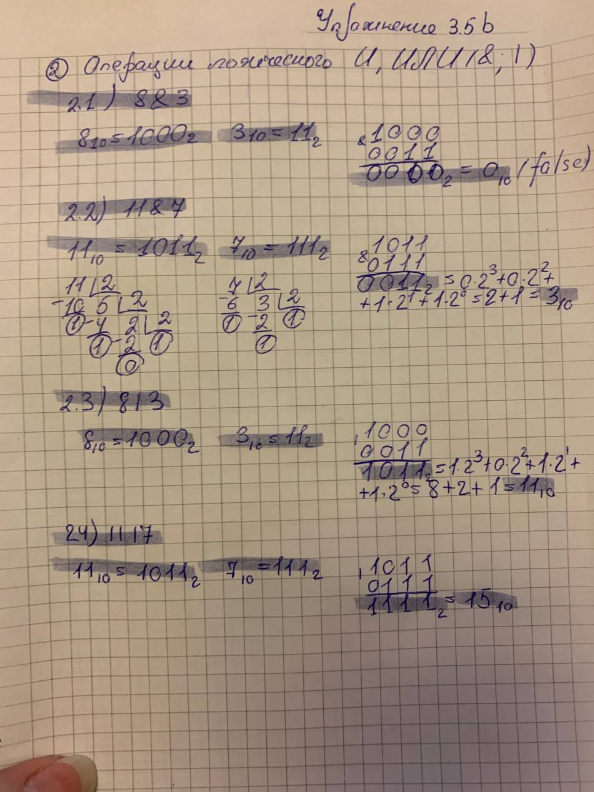 Упражнение 3.5b
② Операции логического И, ИЛИ (&, |)
2.1) 8&3
8₁₀=1000₂ 3₁₀=11₂
& 1000
0011
0000₂ = 0₁₀ (false)
2.2) 11&7
11₁₀ = 1011₂ 7₁₀ = 111₂
& 1011
0111
0011₂ = 0·2³+0·2²+
+1·2¹+1·2⁰=2+1=3₁₀
11 2 7 2
-10 5 2 -6 3 2
1 -4 2 2 1 -2 1
1 -2 1 1
0
2.3) 8|3
8₁₀=1000₂ 3₁₀=11₂
| 1000
0011
1011₂=1·2³+0·2²+1·2¹+
+1·2⁰=8+2+1=11₁₀
2.4) 11|7
11₁₀=1011₂ 7₁₀=111₂
| 1011
0111
1111₂=15₁₀